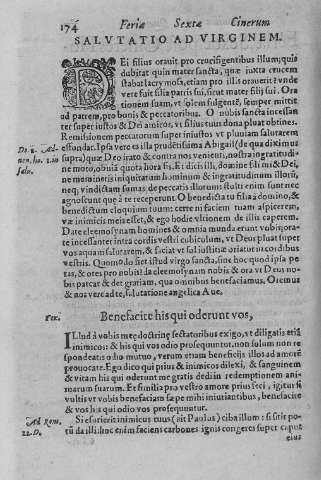 174 Feriæ Sextæ Cinerum
SALVTATIO AD VIRGINEM.
DEi filius orauit pro crucifigentibus illum; quis
dubitat quin mater sancta, quæ iuxta crucem
stabat lacrymosa, etiam pro illis orauerit? vnde
vere fuit filia patris sui, sicut mater filij sui. Ora
tionem suam, vt solem fulgentē, semper mittit
ad patrem, pro bonis & peccatoribus. O nubis sancta incessan
ter super iustos & Dei amicos, vt filius tuus dona pluat
Remissionem peccatorum super iniustos vt pluuiam salutarem
essundac. Ipsa vere es illa prudētissima Abigail (de qua diximus
supra) quæ Deo irato & contra nos venienti, nostra ingratitudi
ne moto, obuia quota hora fis. Et dicis illi, domine fili mi & Dei,
ne memineris iniquitatum hominum & ingratitudinum illorū,
neq; vindictam sumas de peccatis illorum: stulti enim sunt nec
agnoscunt quæ à te receperunt. O benedicta tu filia à domino, &
benedictum eloquium tuum: certe ni faciem tuam aspicerem,
viæ inimicis mei esset, & ego hodie vltionem de illis caperem.
Date eleemosynam homines & omnia munda erunt vobis; ora-
te incessanter intra cordis vestri cubiculum, vt Deus pluat super
vos aquam salutarem, & faciat vt sol iustitiæ oriatur in cordibus
vestris. Quomodo fiet istud virgo sancta, sine hoc quod ipsa pe
tas, & ores pro nobis? da eleemosynam nobis & ora vt Deus no-
bis parcat & det gratiam, qua omnibus benefaciamus. Oremus
& nos vere adte, salutatione angelica Aue.
Do. 1. Ad-
uen. ho. 1. in
Salu.
Tex. Benefacite his qui oderunt vos,
ILlud à vobis meę doctrinę sectatoribus exigo, vt diligatis etiā
inimicos: & his qui vos odio prosequuntur, non solum non re
spondeatis odio mutuo, verum etiam beneficijs illos ad amorē
prouocare. Ego dico qui prius & inimicos dilexi, & sanguinem
& vitam his qui oderunt me gratis dedi in redemptionem ani-
marum suarum. Et similia pro vestro amore prius feci, igitur si
vultis vt vobis benefaciam sæpe mihi iniuriantibus, benefacite
& vos his qui odio vos prosequuntur.
Ad Rom.
12. D.
Si esurierit inimicus tuus (ait Paulus) ciba illum: si sitit po-
tū da illi: hoc enim faciens carbones ignis congeres super caput
eius